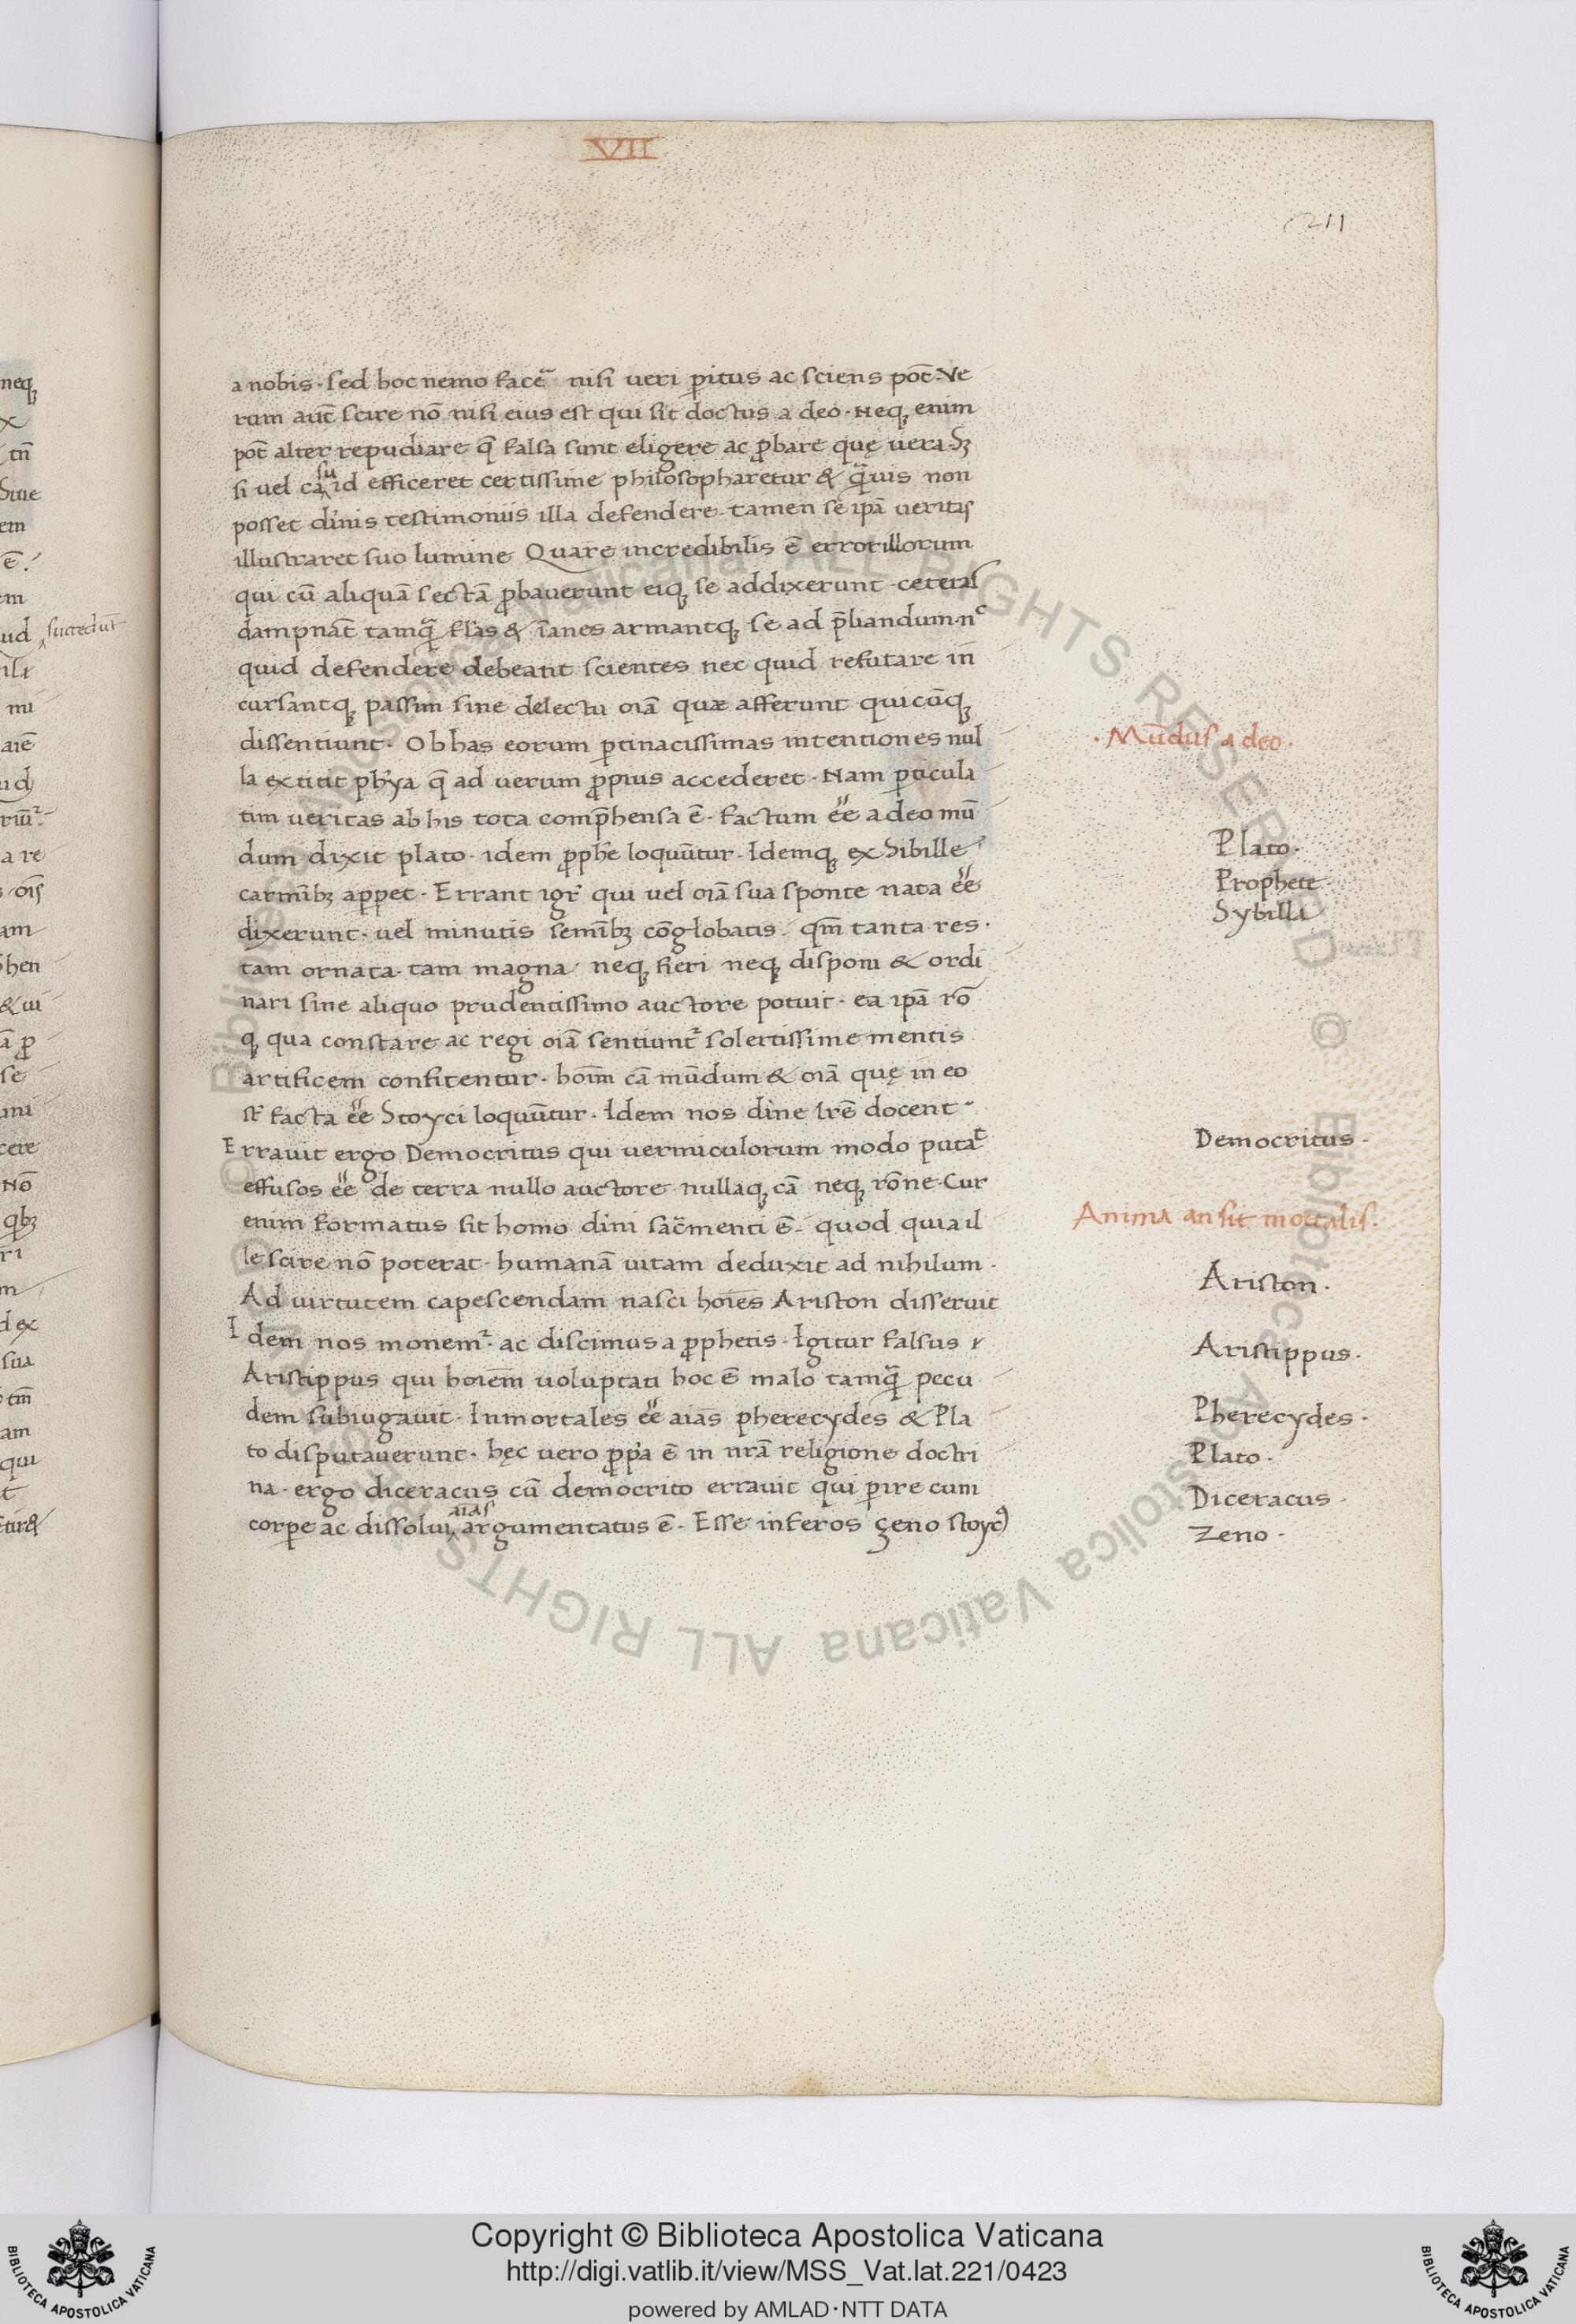 VII
211
a nobis · sed hoc nemo facẽ nisi veri ꝑitus ac sciens pot̃ · Ve
rum aut̃ scire nõ nisi eius est qui sit doctus a deo · Neqꝫ enim
pot̃ alter repudiare q̃ falsa sunt eligere ac ꝓbare quę vera · Sꝫ
si vel cãsu id efficeret certissime philosopharetur & q̃uis non
posset diĩnis testimoniis illa defendere · tamen sẽ ipã veritas
illustraret suo lumine Quare incredibilis ẽ error illorum
qui cũ aliquã sectã ꝓbaverunt eiqꝫ se addixerunt · ceteras
dampnãt tamq̃ fl̃as & ĩanes armantqꝫ se ad p̃liandum · nc̃
quid defendere debeant scientes nec quid refutare in
cursantqꝫ passim sine delectu oiã quæ afferunt quicũqꝫ
dissentiunt · Ob has eorum ꝑtinacissimas intentiones nul
la extitit ph̃ya q̃ ad verum ꝓpius accederet · Nam ꝑticula
tim veritas ab his tota comp̃hensa ẽ · factum ẽe a deo mũ
dum dixit plato · idem ꝓphẽ loquũtur · Idemqꝫ ex Sibille
carmĩbꝫ apꝑet · Errant igr̃ qui vel oiã sua sponte nata ẽe
dixerunt · vel minutis semĩbꝫ cõglobatis · qm̃ tanta res ·
tam ornata · tam magna neqꝫ fieri neqꝫ disponi & ordi
nari sine aliquo prudentissimo auctore potuit · ea ipã rõ
qꝫ qua constare ac regi oiã sentiunt᷑ solertissime mentis
artificem confitentur · hoim̃ cã mũdum & oiã quę in eo
st̃ facta ẽe Stoyci loquũtur · Idem nos diñe lr̃ẽ docent
Erravit ergo Democritus qui vermiculorum modo putat
effusos ẽe de terra nullo auctore nullaqꝫ cã neqꝫ rõne · Cur
enim formatus sit homo diñi sac̃menti ẽ · quod quia il
le scire nõ poterat · humanã vitam deduxit ad nihilum ·
Ad virtutem capescendam nasci hoĩes Ariston disseruit
Idem nos monem᷑ · ac discimus a ꝓphetis · Igitur falsus
Aristippus qui hoiẽm voluptati hoc ẽ malo tamq̃ pecu
dem subiugavit · Inmortales ẽe aĩas pherecydes & Pla
to disputaverunt · hęc vero ꝓpĩa ẽ in nr̃ã religione doctri
na · ergo diceracus cũ democrito erravit qui ꝑire cum
corꝑe ac dissolui aĩas argumentatus ẽ · Esse inferos çeno stoycꝰ
· Mũdus a deo ·
Plato ·
Prophete
Sybilla
Democritus ·
Anima an sit mortalis ·
Ariston ·
Aristippus ·
Pherecydes ·
Plato ·
Diceracus ·
Zeno ·
Copyright © Biblioteca Apostolica Vaticana
http://digi.vatlib.it/view/MSS_Vat.lat.221/0423
powered by AMLAD·NTT DATA